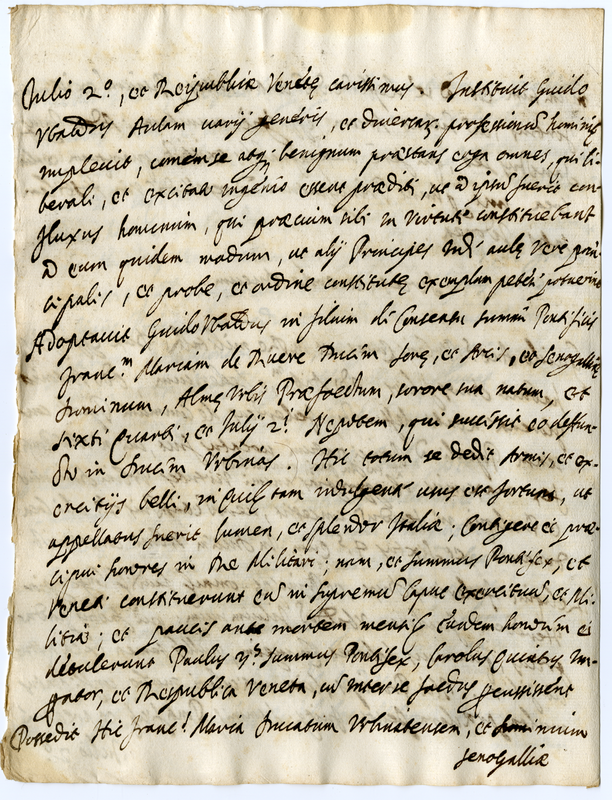 Julio 2.º, et Reipublicæ Venetę carissimus. Instituit Guido
Vbaldus Aulam varij generis, et diversar. professionũ hominib.
implevit, comémse atq; benignum præstans erga omnes, qui li-
berali, et excitato ingenio essent præditi, ut ad ipsũ fuerit con
fluxus hominum, qui præmium sibi in virtute constituebant
ad eum quidem modum, ut alij Principes indè aulę verè prin-
cipalis, et probe, et ordine constitutę exemplum petere potuerint
Adoptavit Guido Vbaldus in filium de Consensu summi Pontificis
Franc.m Mariam de Ruere Ducem Sorę, et Arcis, et Senogalliæ
Dominum, Almę Vrbis Præfectum, sorore sua natum, et
Sixti Quarti, et Julij 2.i Nepotem, qui successit eo defun-
cto in Ducem Vrbinas. Hic totum se dedit Armis, et ex-
ercitijs belli, in quib. tam indulgente usus est fortuna, ut
appellatus fuerit lumen, et splendor Italiæ; Contigere ei præ
cipui honores in re Militari; nam, et summus Pontifex, et
Veneti constituerunt eũ in supremũ caput exercituũ, et Mi-
litiæ; et paucis ante mortem mensib. eundem honorem ei
detulerunt Paulus 3.s summus Pontifex, Carolus Quintus Im-
perator, et Respublica Veneta, cũ inter se foedus percussissent
Possedit Hic Franc.s Maria Ducatum Vrbinatensem, et Dominium
Senogalliæ